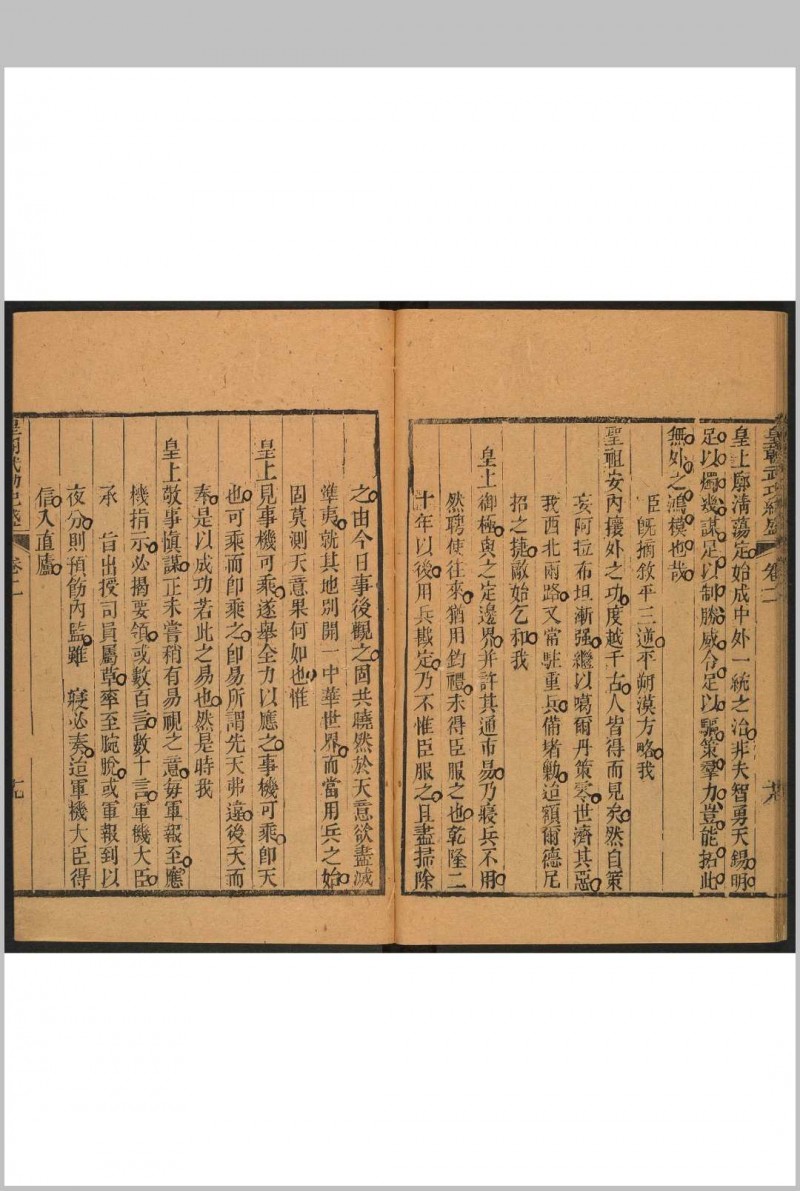 皇朝武功紀盛 卷二
皇上廓清蕩定始成中外一統之治非夫智勇天錫明
足以燭幾謀足以制勝威令足以驅策羣力豈能拓此
無外之鴻模也哉
臣既摘敘平三逆平朔漠方略我
聖祖安內攘外之功度越千古人皆得而見矣然自策
妄阿拉布坦漸强繼以噶爾丹策零世濟其惡
我西北兩路又常駐重兵備堵勦迨額爾德尼
招之捷敵始乞和我
皇上御極與之定邊界并許其通市易乃寢兵不用
然聘使往來猶用鈞禮未得臣服之也乾隆二
十年以後用兵戡定乃不惟臣服之且盡掃除
之由今日事後觀之固共曉然於天意欲盡滅
準夷就其地別開一中華世界而當用兵之始
固莫測天意果何如也惟
皇上見事機可乘遂舉全力以應之事機可乘卽天
也可乘而卽乘之卽易所謂先天弗違後天而
奉是以成功若此之易也然是時我
皇上敬事愼謀正未嘗稍有易視之意每軍報至應
機指示必揭要領或數百言數十言軍機大臣
承 旨出授司員屬草率至腕脫或軍報到以
夜分則預飭內監雖 寢必奏迨軍機大臣得
信入直廬
皇朝武功紀盛 卷二